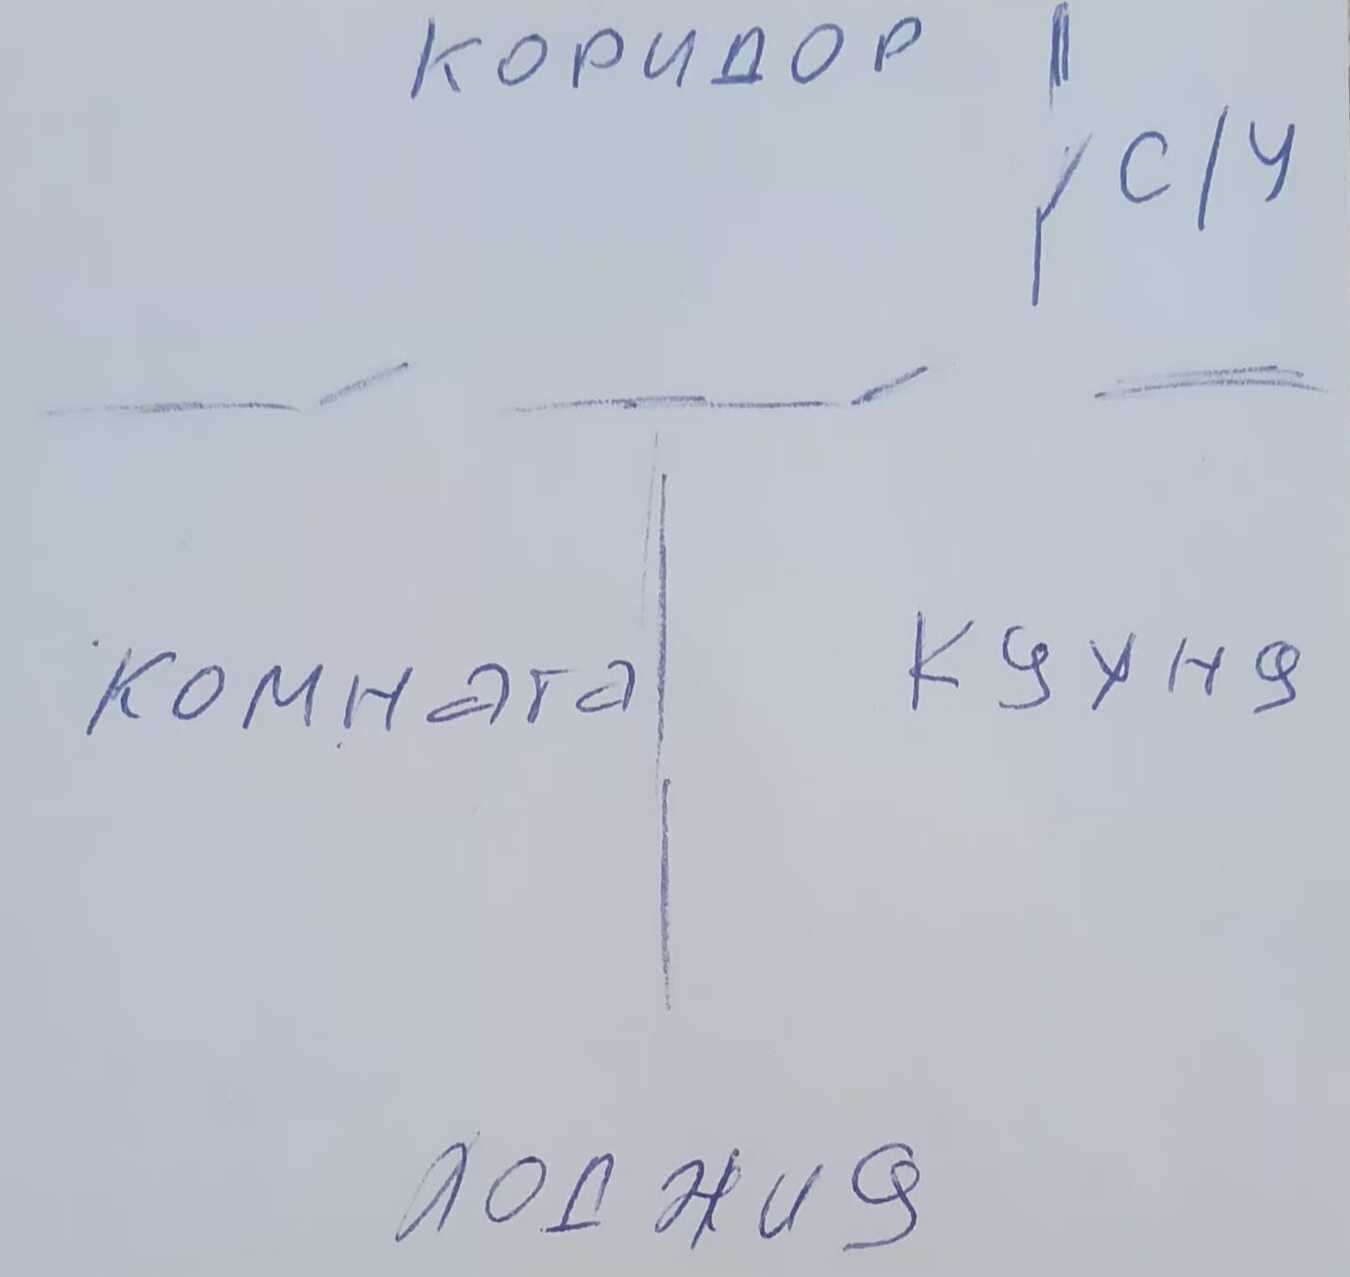 коридор
с/у
комната
кухня
лоджия